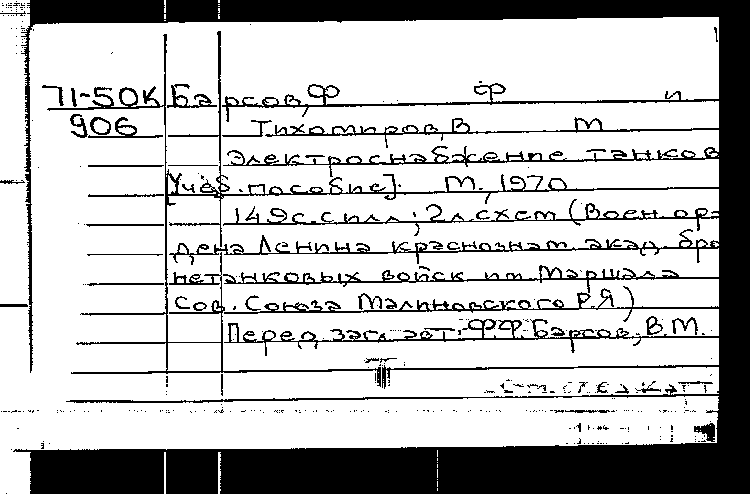 71-50К Барсов, Ф Ф и
906 Тихомиров, В. М
Электроснабжение танков
[Учеб. пособие]. М., 1970
149с. с илл.; 2л. схем (Воен. ор-
дена Ленина краснознам. акад. бро
нетанковых войск им. Маршала
Сов. Союза Малиновского Р.Я)
Перед загл. авт.: Ф.Ф. Барсов, В.М.